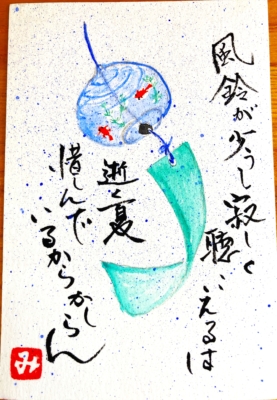 風鈴が少うし寂しく
聴こえるは
逝く夏
惜しんで
いるからかしらん
み